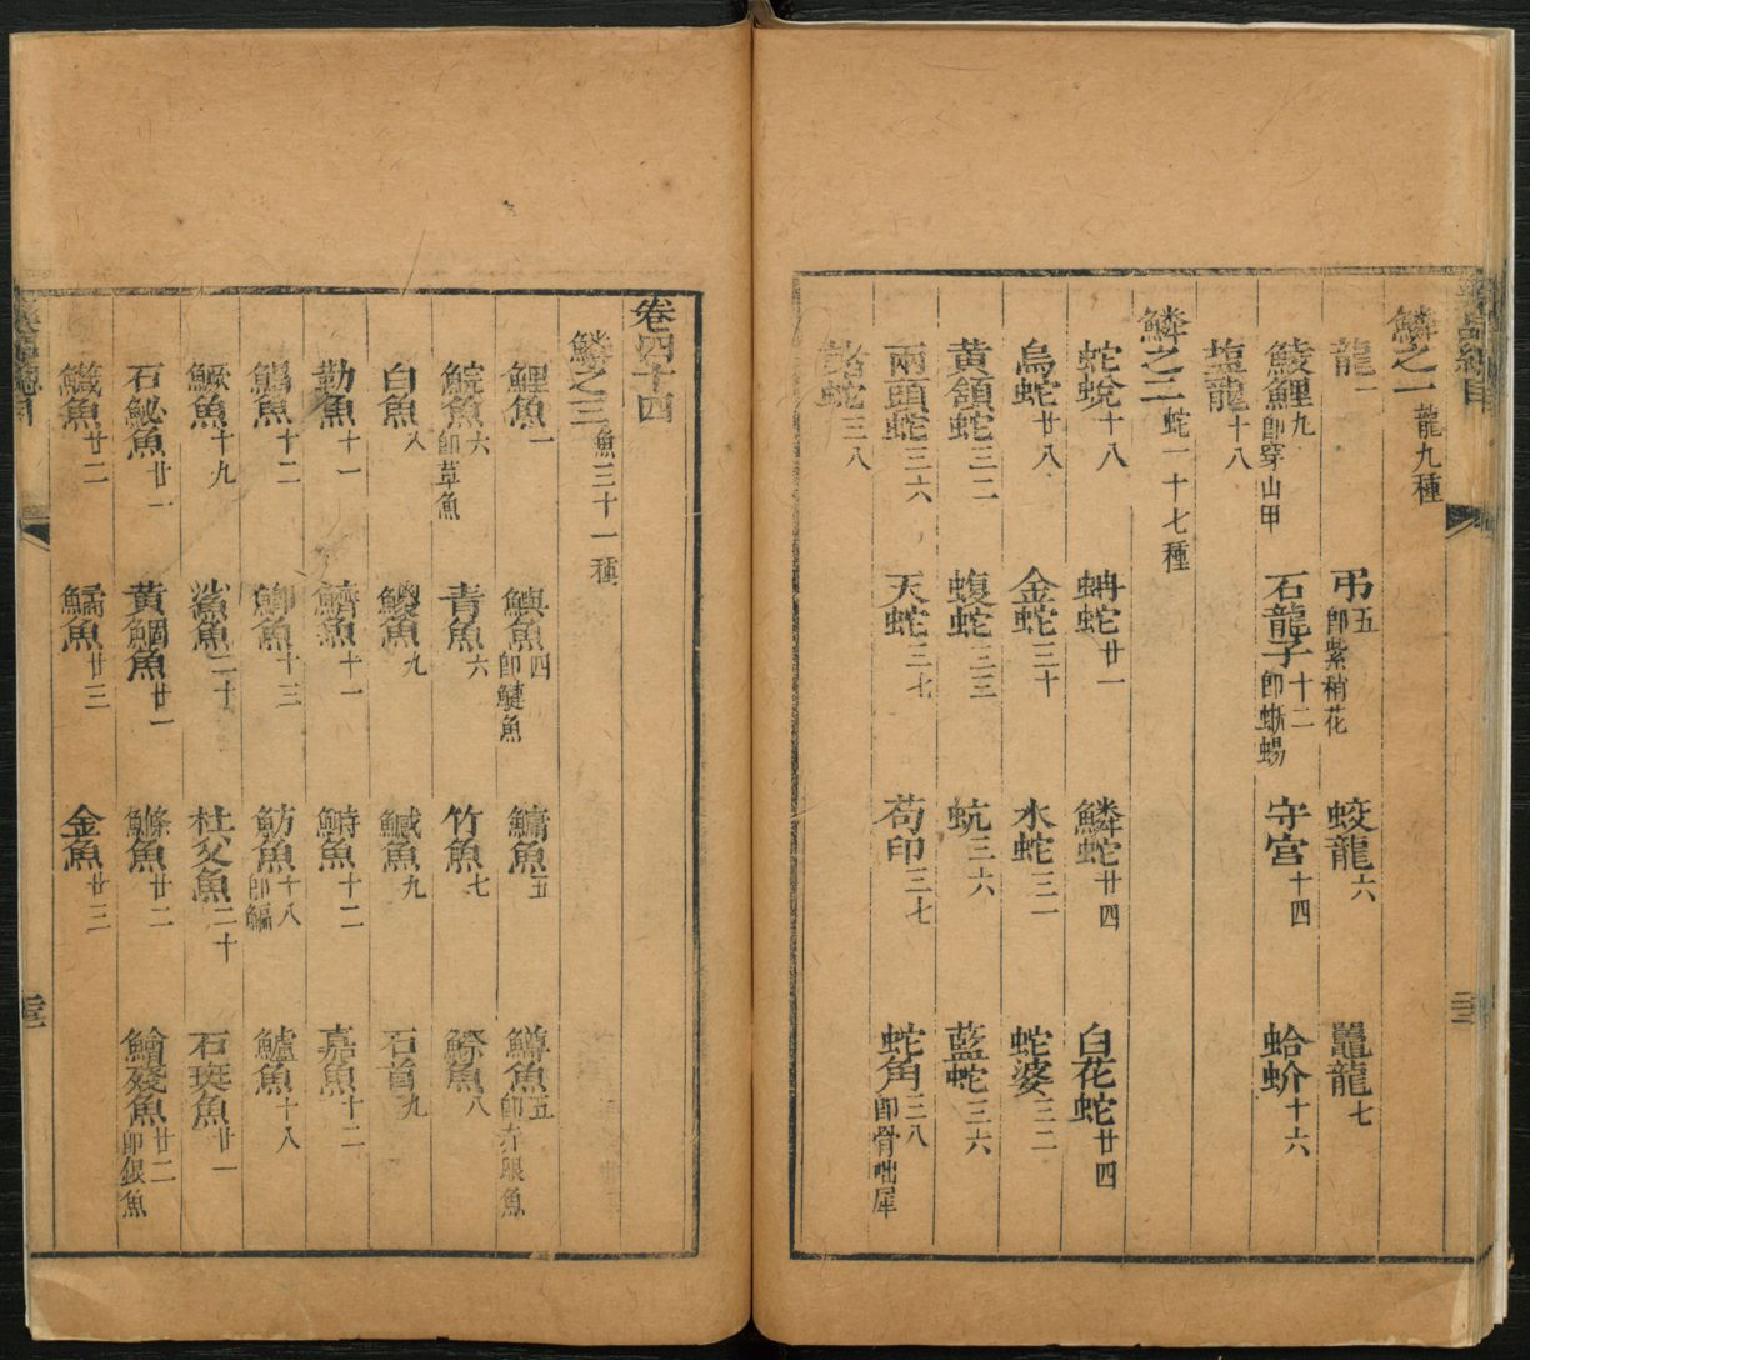 鱗之一 龍九種
龍一 弔五即紫稍花 蛟龍六 鼉龍七
鯪鯉九即穿山甲 石龍子十二即蜥蜴 守宮十四 蛤蚧十六
塩龍十八
鱗之二 蛇一十七種
蛇蛻十八 蚺蛇廿一 鱗蛇廿四 白花蛇廿四
烏蛇廿八 金蛇三十 水蛇三一 蛇婆三二
黄頷蛇三二 蝮蛇三三 蚖三六 藍蛇三六
兩頭蛇三六 天蛇三七 苟印三七 蛇角三八即骨咄犀
蛇三八
卷四十四
鱗之三 魚三十一種
鯉魚一 鱮魚四即鰱魚 鱅魚五 鱒魚五即赤眼魚
鯇魚六即草魚 青魚六 竹魚七 鰷魚八
白魚八 鯼魚九 鰔魚九 石首九
勒魚十一 鱭魚十一 鰣魚十二 嘉魚十二
鯧魚十二 鯽魚十三 魴魚十八即鯿 鱸魚十八
鱖魚十九 鯊魚二十 杜父魚二十 石斑魚廿一
石鮅魚廿一 黄鯝魚廿一 鰷魚廿二 鱠殘魚廿二即銀魚
鱵魚廿二 鱊魚廿三 金魚廿三